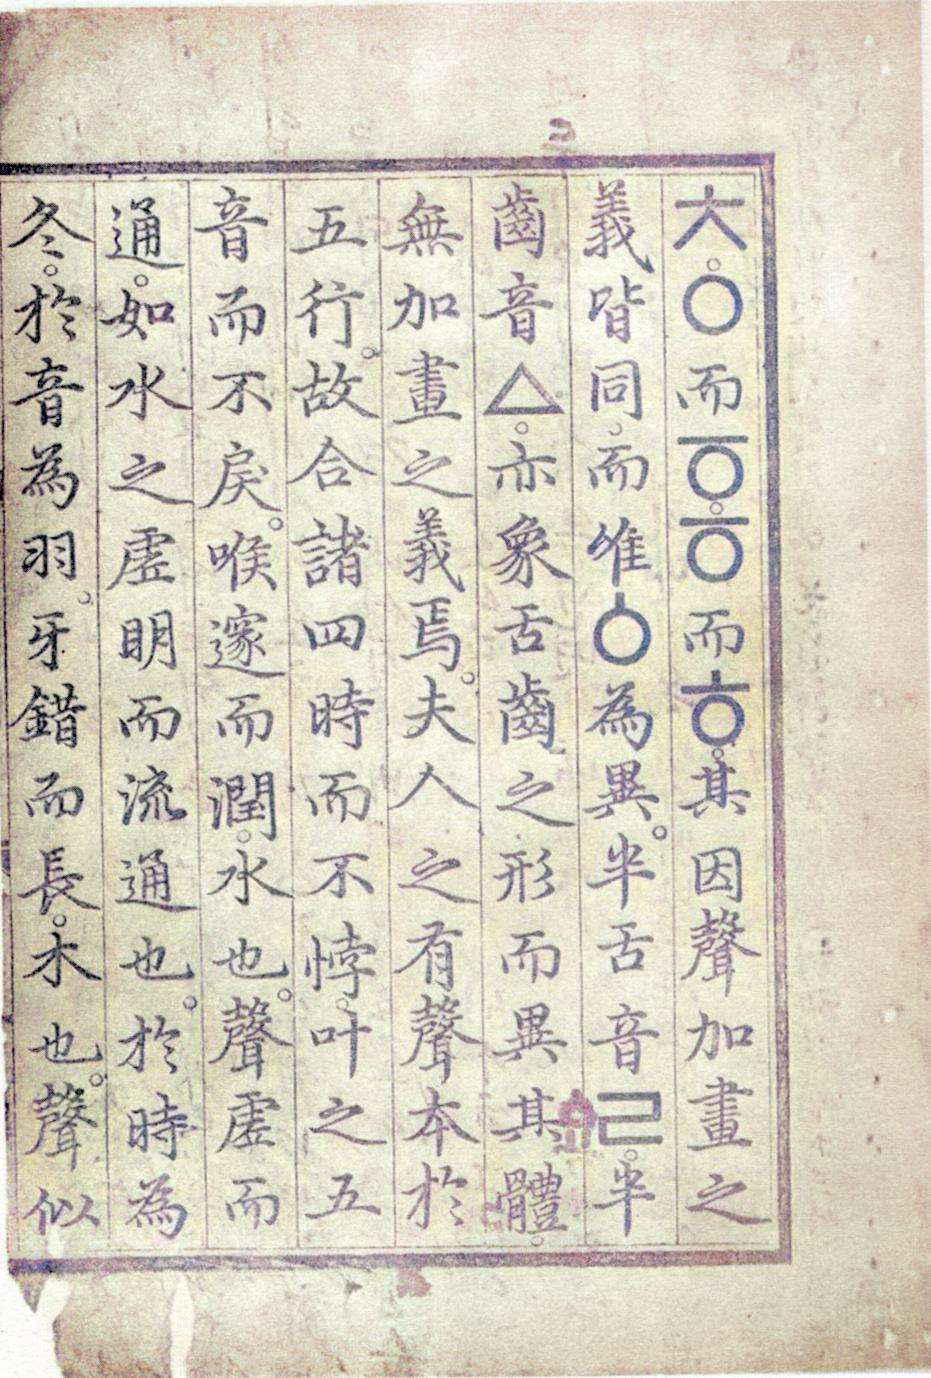 ㅊ。ㅇ而ㆆ。ㆆ而ㅎ。其因聲加畫之
義皆同。而唯ㆁ為異。半舌音ㄹ。半
齒音ㅿ。亦象舌齒之形而異其體。
無加畫之義焉。夫人之有聲本於
五行。故合諸四時而不悖。叶之五
音而不戾。喉邃而潤。水也。聲虛而
通。如水之虛明而流通也。於時為
冬。於音為羽。牙錯而長。木也。聲似